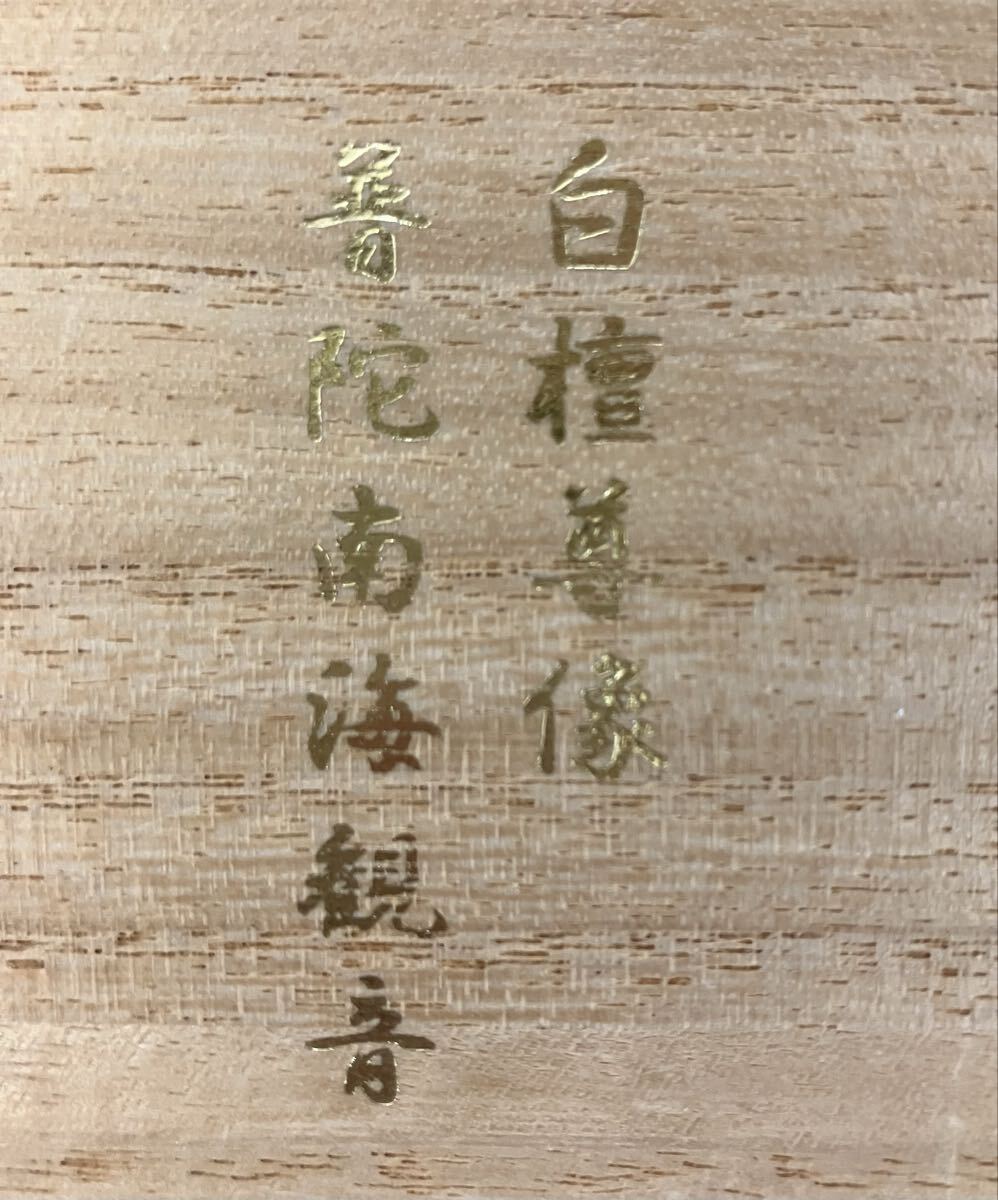 白檀尊像
普陀南海観音